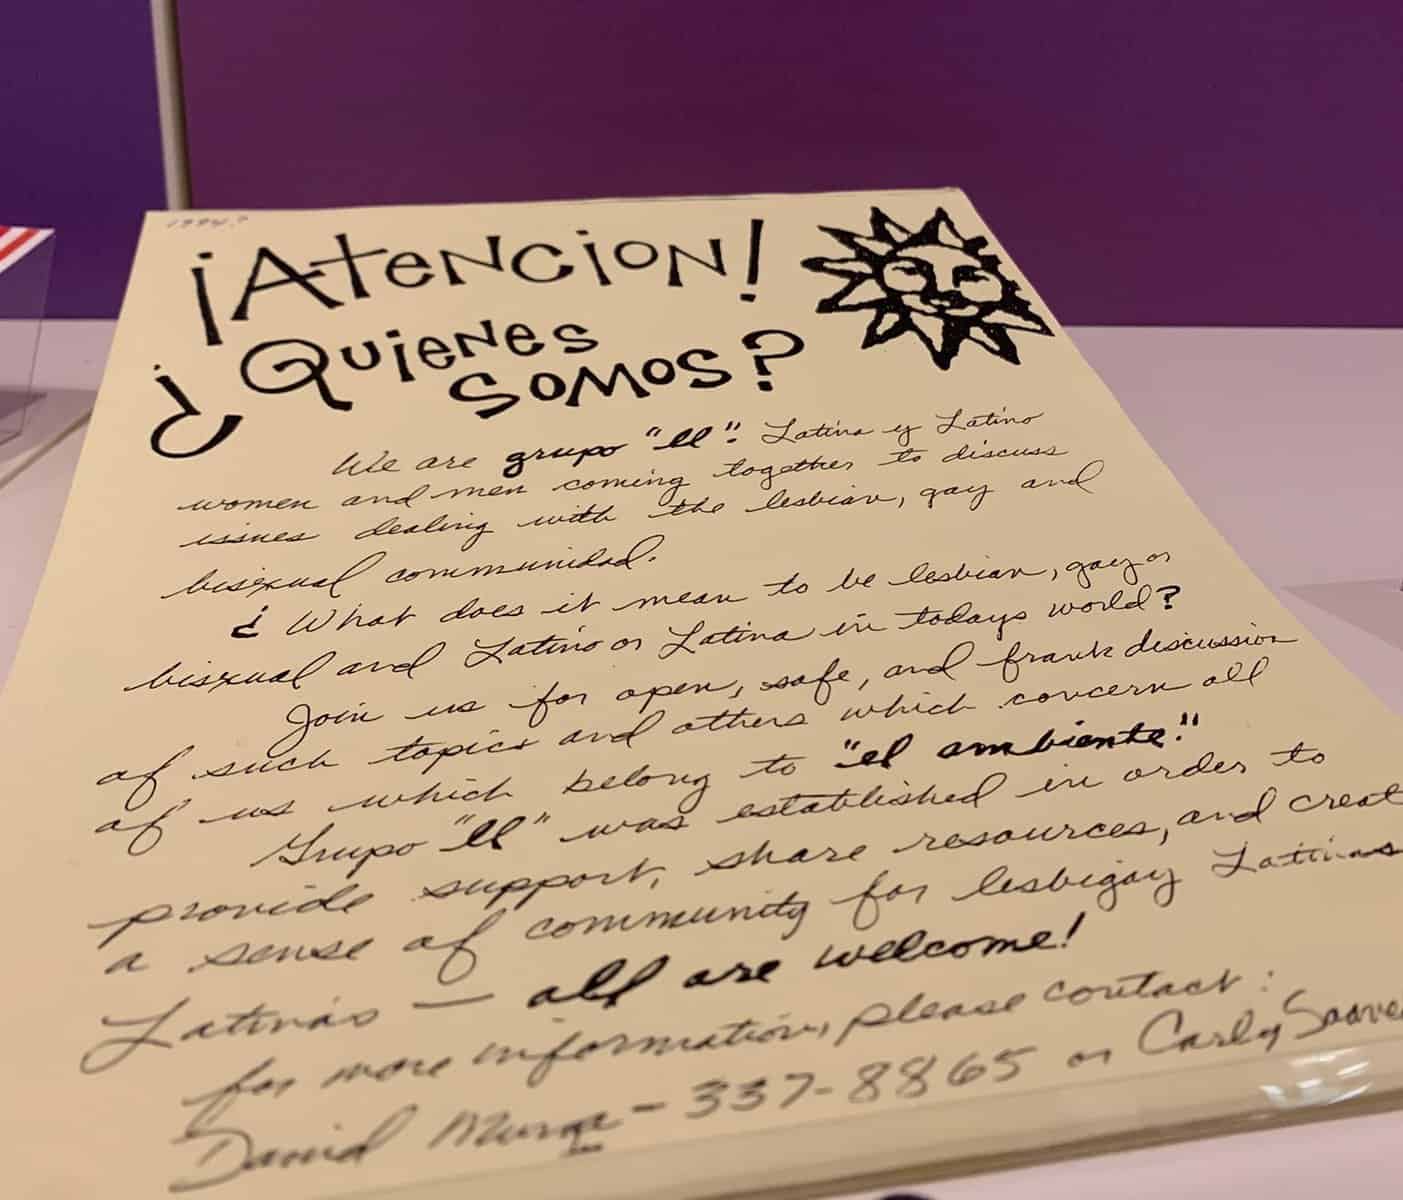 1994?
¡Atencion!
¿Quienes
somos?
We are grupo "ll". Latina y Latino
women and men coming together to discuss
issues dealing with the lesbian, gay and
bisexual communidad.
¿ What does it mean to be lesbian, gay or
bisexual and Latino or Latina in todays world?
Join us for open, safe, and frank discussion
of such topics and others which concern all
of us which belong to "el ambiente."
Grupo "ll" was established in order to
provide support, share resources, and creat
a sense of community for lesbigay Latinas
Latinas — all are welcome!
for more information, please contact:
David - 337-8865 or Carly Saave